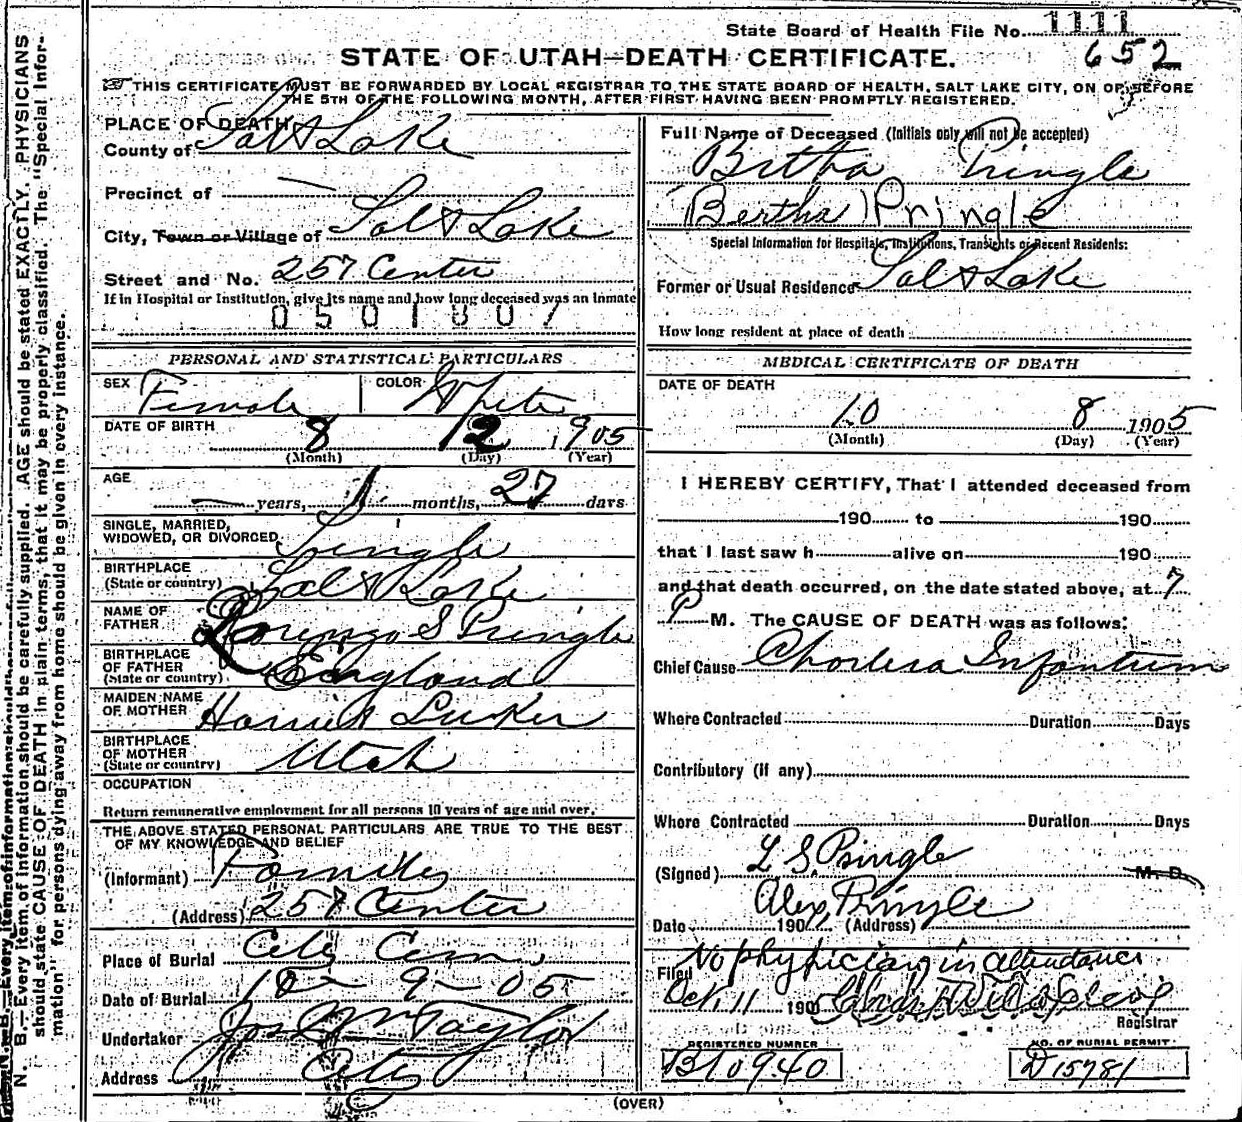 State Board of Health File No. 1111
652
STATE OF UTAH—DEATH CERTIFICATE.
THIS CERTIFICATE MUST BE FORWARDED BY LOCAL REGISTRAR TO THE STATE BOARD OF HEALTH, SALT LAKE CITY, ON OR BEFORE
THE 5TH OF THE FOLLOWING MONTH, AFTER FIRST HAVING BEEN PROMPTLY REGISTERED.
PLACE OF DEATH
County of Salt Lake
Precinct of —
City, Town or Village of Salt Lake
Street and No. 257 Center
If in Hospital or Institution, give its name and how long deceased was an inmate
0501807
PERSONAL AND STATISTICAL PARTICULARS
SEX Female COLOR White
DATE OF BIRTH 8 12 1905
(Month) (Day) (Year)
AGE
— years, 1 months, 27 days
SINGLE, MARRIED,
WIDOWED, OR DIVORCED Single
BIRTHPLACE
(State or country) Salt Lake
NAME OF
FATHER Lorenzo S Pringle
BIRTHPLACE
OF FATHER
(State or country) England
MAIDEN NAME
OF MOTHER Harriet Luker
BIRTHPLACE
OF MOTHER
(State or country) Utah
OCCUPATION
Return remunerative employment for all persons 10 years of age and over.
THE ABOVE STATED PERSONAL PARTICULARS ARE TRUE TO THE BEST
OF MY KNOWLEDGE AND BELIEF
(Informant) Family
(Address) 257 Center
Place of Burial City Cem
Date of Burial 10 - 9 - 05
Undertaker Jos Wm Taylor
Address City
Full Name of Deceased (Initials only will not be accepted)
Bertha Pringle
Bertha Pringle
Special Information for Hospitals, Institutions, Transients or Recent Residents:
Former or Usual Residence Salt Lake
How long resident at place of death
MEDICAL CERTIFICATE OF DEATH
DATE OF DEATH
10 8 1905
(Month) (Day) (Year)
I HEREBY CERTIFY, That I attended deceased from
190 to 190
that I last saw h alive on 190
and that death occurred, on the date stated above, at 7
P M. The CAUSE OF DEATH was as follows:
Chief Cause Cholera Infantum
Where Contracted Duration Days
Contributory (if any)
Where Contracted Duration Days
(Signed) L S Pringle M. D.
Alex Pringle
Date 190 (Address)
No physician in attendance
Filed Oct. 11 190
Registrar
REGISTERED NUMBER
B10940
NO. OF BURIAL PERMIT
D 15781
(OVER)
N. B.—Every item of information should be carefully supplied. AGE should be stated EXACTLY. PHYSICIANS
should state CAUSE OF DEATH in plain terms, that it may be properly classified. The "Special Infor-
mation" for persons dying away from home should be given in every instance.